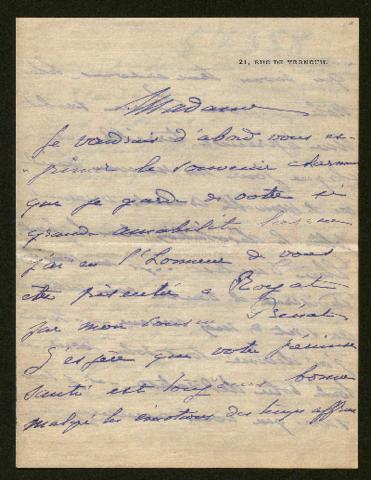 21, RUE DE VERNEUIL
Madame
Je voudrais d'abord vous ex-
-primer le souvenir charmant
que je garde de votre si
grande amabilité lorsque
j'ai eu l'honneur de vous
être présenté à Royat
par mon cousin Bénat
J'espère que votre précieuse
santé est toujours bonne
malgré les émotions des temps affreux